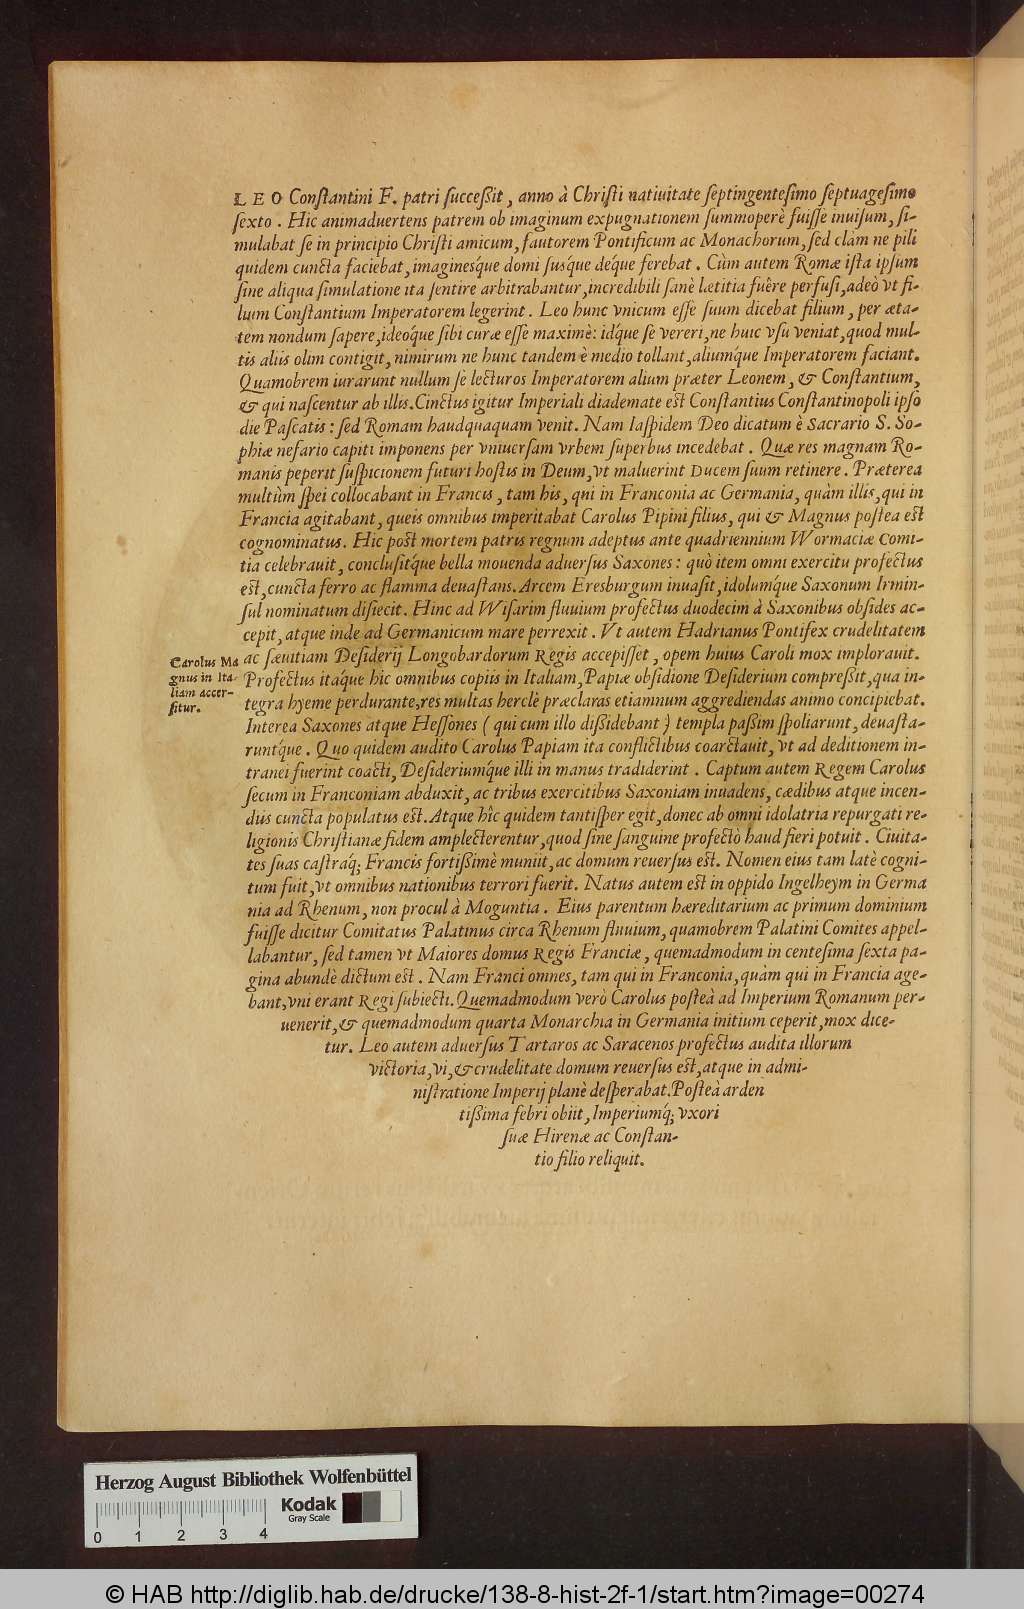 LEO Conſtantini F. patri ſucceßit, anno à Chriſti natiuitate ſeptingenteſimo ſeptuageſimo
ſexto. Hic animaduertens patrem ob imaginum expugnationem ſummoperè fuiſſe inuiſum, ſi-
mulabat ſe in principio Chriſti amicum, fautorem Pontificum ac Monachorum, ſed clàm ne pili
quidem cuncta faciebat, imagineśque domi ſuśque deque ferebat. Cùm autem Romæ iſta ipſum
ſine aliqua ſimulatione ita ſentire arbitrabantur, incredibili ſanè lætitia fuêre perfuſi, adeò vt fi-
lium Conſtantium Imperatorem legerint. Leo hunc vnicum eſſe ſuum dicebat filium, per æta-
tem nondum ſapere, ideoq́ue ſibi curæ eſſe maximè: idq́ue ſe vereri, ne huic vſu veniat, quod mul-
tis aliis olim contigit, nimirum ne hunc tandem è medio tollant, aliumq́ue Imperatorem faciant.
Quamobrem iurarunt nullum ſe lecturos Imperatorem alium præter Leonem, & Conſtantium,
& qui naſcentur ab illis. Cinctus igitur Imperiali diademate eſt Conſtantius Conſtantinopoli ipſo
die Paſcatis: ſed Romam haudquaquam venit. Nam Iaſpidem Deo dicatum è Sacrario S. So-
phiæ nefario capiti imponens per vniuerſam vrbem ſuperbus incedebat. Quæ res magnam Ro-
manis peperit ſuſpicionem futuri hoſtis in Deum, vt maluerint Ducem ſuum retinere. Præterea
multùm ſpei collocabant in Francis, tam his, qni in Franconia ac Germania, quàm illis, qui in
Francia agitabant, queis omnibus imperitabat Carolus Pipini filius, qui & Magnus poſtea eſt
cognominatus. Hic poſt mortem patris regnum adeptus ante quadriennium Wormaciæ Comi-
tia celebrauit, concluſitq́ue bella mouenda aduerſus Saxones: quò item omni exercitu profectus
eſt, cuncta ferro ac flamma deuaſtans. Arcem Eresburgum inuaſit, idolumq́ue Saxonum Irmin-
ſul nominatum diſiecit. Hinc ad Wiſarim fluuium profectus duodecim à Saxonibus obſides ac-
cepit, atque inde ad Germanicum mare perrexit. Vt autem Hadrianus Pontifex crudelitatem
ac ſæuitiam Deſiderij Longobardorum Regis accepiſſet, opem huius Caroli mox implorauit.
Carolus Ma
gnus in Ita-
liam accer-
ſitur.
Profectus itaq́ue hic omnibus copiis in Italiam, Papiæ obſidione Deſiderium compreſſit, qua in-
tegra hyeme perdurante, res multas herclè præclaras etiamnum aggrediendas animo concipiebat.
Interea Saxones atque Heſſones (qui cum illo dißidebant) templa paßim ſpoliarunt, deuaſta-
runtq́ue. Quo quidem audito Carolus Papiam ita conflictibus coarctauit, vt ad deditionem in-
tranei fuerint coacti, Deſideriumq́ue illi in manus tradiderint. Captum autem Regem Carolus
ſecum in Franconiam abduxit, ac tribus exercitibus Saxoniam inuadens, cædibus atque incen-
diis cuncta populatus eſt. Atque hîc quidem tantiſper egit, donec ab omni idolatria repurgati re-
ligionis Chriſtianæ fidem amplecterentur, quod ſine ſanguine profectò haud fieri potuit. Ciuita-
tes ſuas caſtraq́; Francis fortißimè muniit, ac domum reuerſus eſt. Nomen eius tam latè cogni-
tum fuit, vt omnibus nationibus terrori fuerit. Natus autem eſt in oppido Ingelheym in Germa
nia ad Rhenum, non procul à Moguntia. Eius parentum hæreditarium ac primum dominium
fuiſſe dicitur Comitatus Palatinus circa Rhenum fluuium, quamobrem Palatini Comites appel-
labantur, ſed tamen vt Maiores domus Regis Franciæ, quemadmodum in centeſima ſexta pa-
gina abundè dictum eſt. Nam Franci omnes, tam qui in Franconia, quàm qui in Francia age-
bant, vni erant Regi ſubiecti. Quemadmodum verò Carolus poſteà ad Imperium Romanum per-
uenerit, & quemadmodum quarta Monarchia in Germania initium ceperit, mox dice-
tur. Leo autem aduerſus Tartaros ac Saracenos profectus audita illorum
victoria, vi, & crudelitate domum reuerſus eſt, atque in admi-
niſtratione Imperij planè deſperabat. Poſteà arden
tißima febri obiit, Imperiumq́; vxori
ſuæ Hirenæ ac Conſtan-
tio filio reliquit.
Herzog August Bibliothek Wolfenbüttel
Kodak
Gray Scale
0 1 2 3 4
© HAB http://diglib.hab.de/drucke/138-8-hist-2f-1/start.htm?image=00274